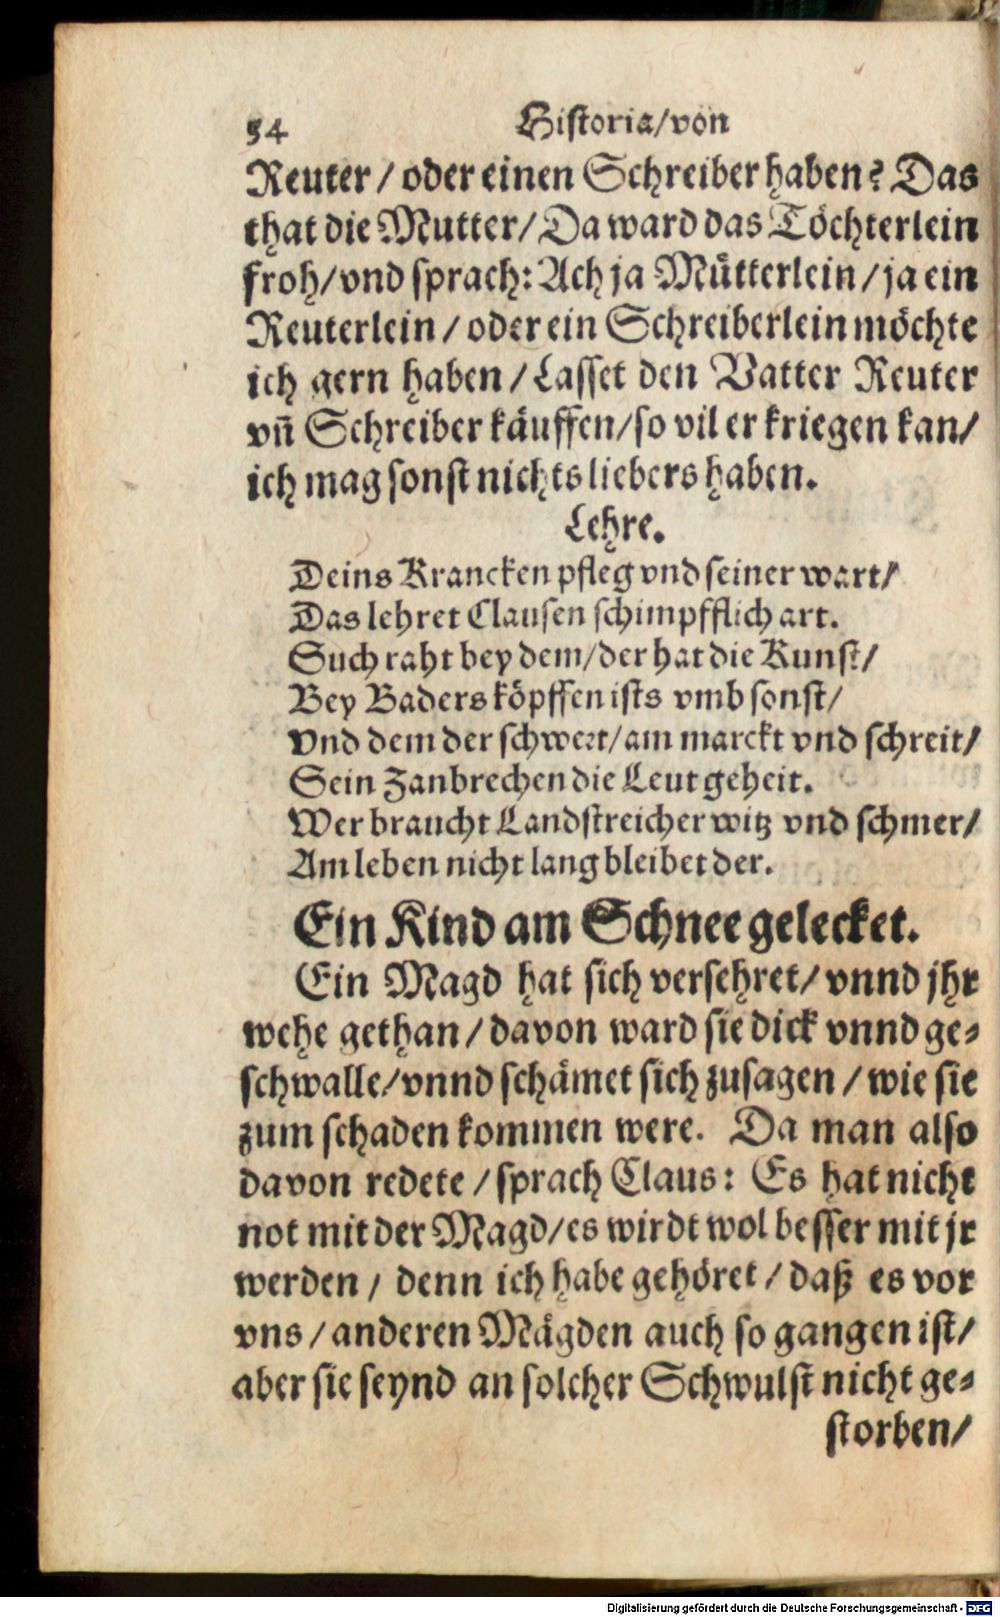 54 Historia/von
Reuter/oder einen Schreiber haben? Das
that die Mutter/Da ward das Töchterlein
froh/vnd sprach: Ach ja Mütterlein/ja ein
Reuterlein/oder ein Schreiberlein möchte
ich gern haben/Lasset den Vatter Reuter
vn̄ Schreiber käuffen/so vil er kriegen kan/
ich mag sonst nichts liebers haben.
Lehre.
Deins Krancken pfleg vnd seiner wart/
Das lehret Clausen schimpfflich art.
Such raht bey dem/der hat die Kunst/
Bey Baders köpffen ists vmb sonst/
Vnd dem der schwert/am marckt vnd schreit/
Sein Zanbrechen die Leut geheit.
Wer braucht Landstreicher witz vnd schmer/
Am leben nicht lang bleibet der.
Ein Kind am Schnee gelecket.
Ein Magd hat sich versehret/vnnd jhr
wehe gethan/davon ward sie dick vnnd ge-
schwalle/vnnd schämet sich zusagen/wie sie
zum schaden kommen were. Da man also
davon redete/sprach Claus: Es hat nicht
not mit der Magd/es wirdt wol besser mit jr
werden/denn ich habe gehöret/daß es vor
vns/anderen Mägden auch so gangen ist/
aber sie seynd an solcher Schwulst nicht ge-
storben/
Digitalisierung gefördert durch die Deutsche Forschungsgemeinschaft - DFG